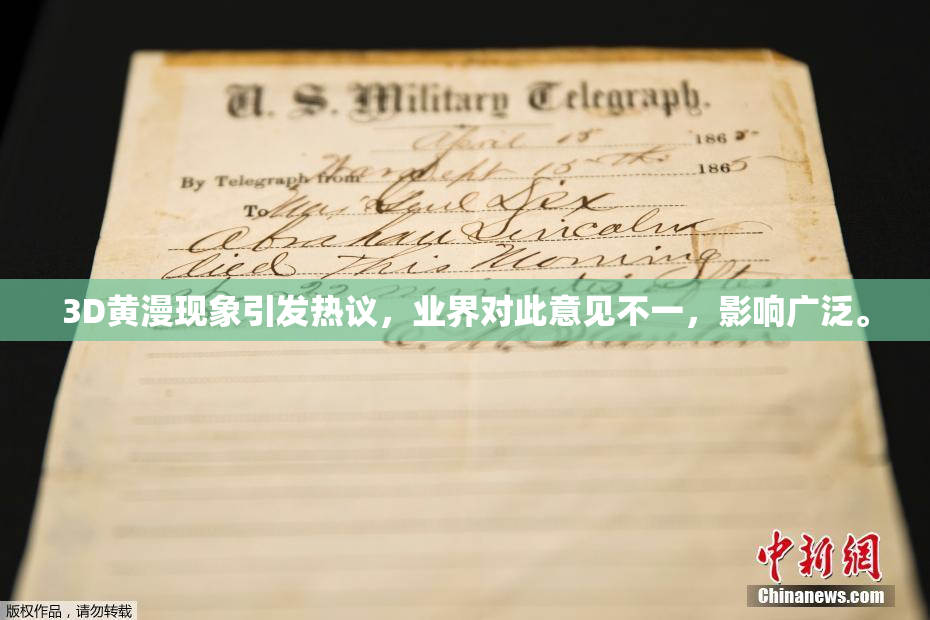 U. S. Military Telegraph.
April 15 1865
By Telegraph from War Dept 15th 1865
To Maj Genl Dix
Abraham Lincoln
died This Morning
22 minutes after
3D黄漫现象引发热议，业界对此意见不一，影响广泛。
E. M. Stanton
中新网
Chinanews.com
版权作品，请勿转载